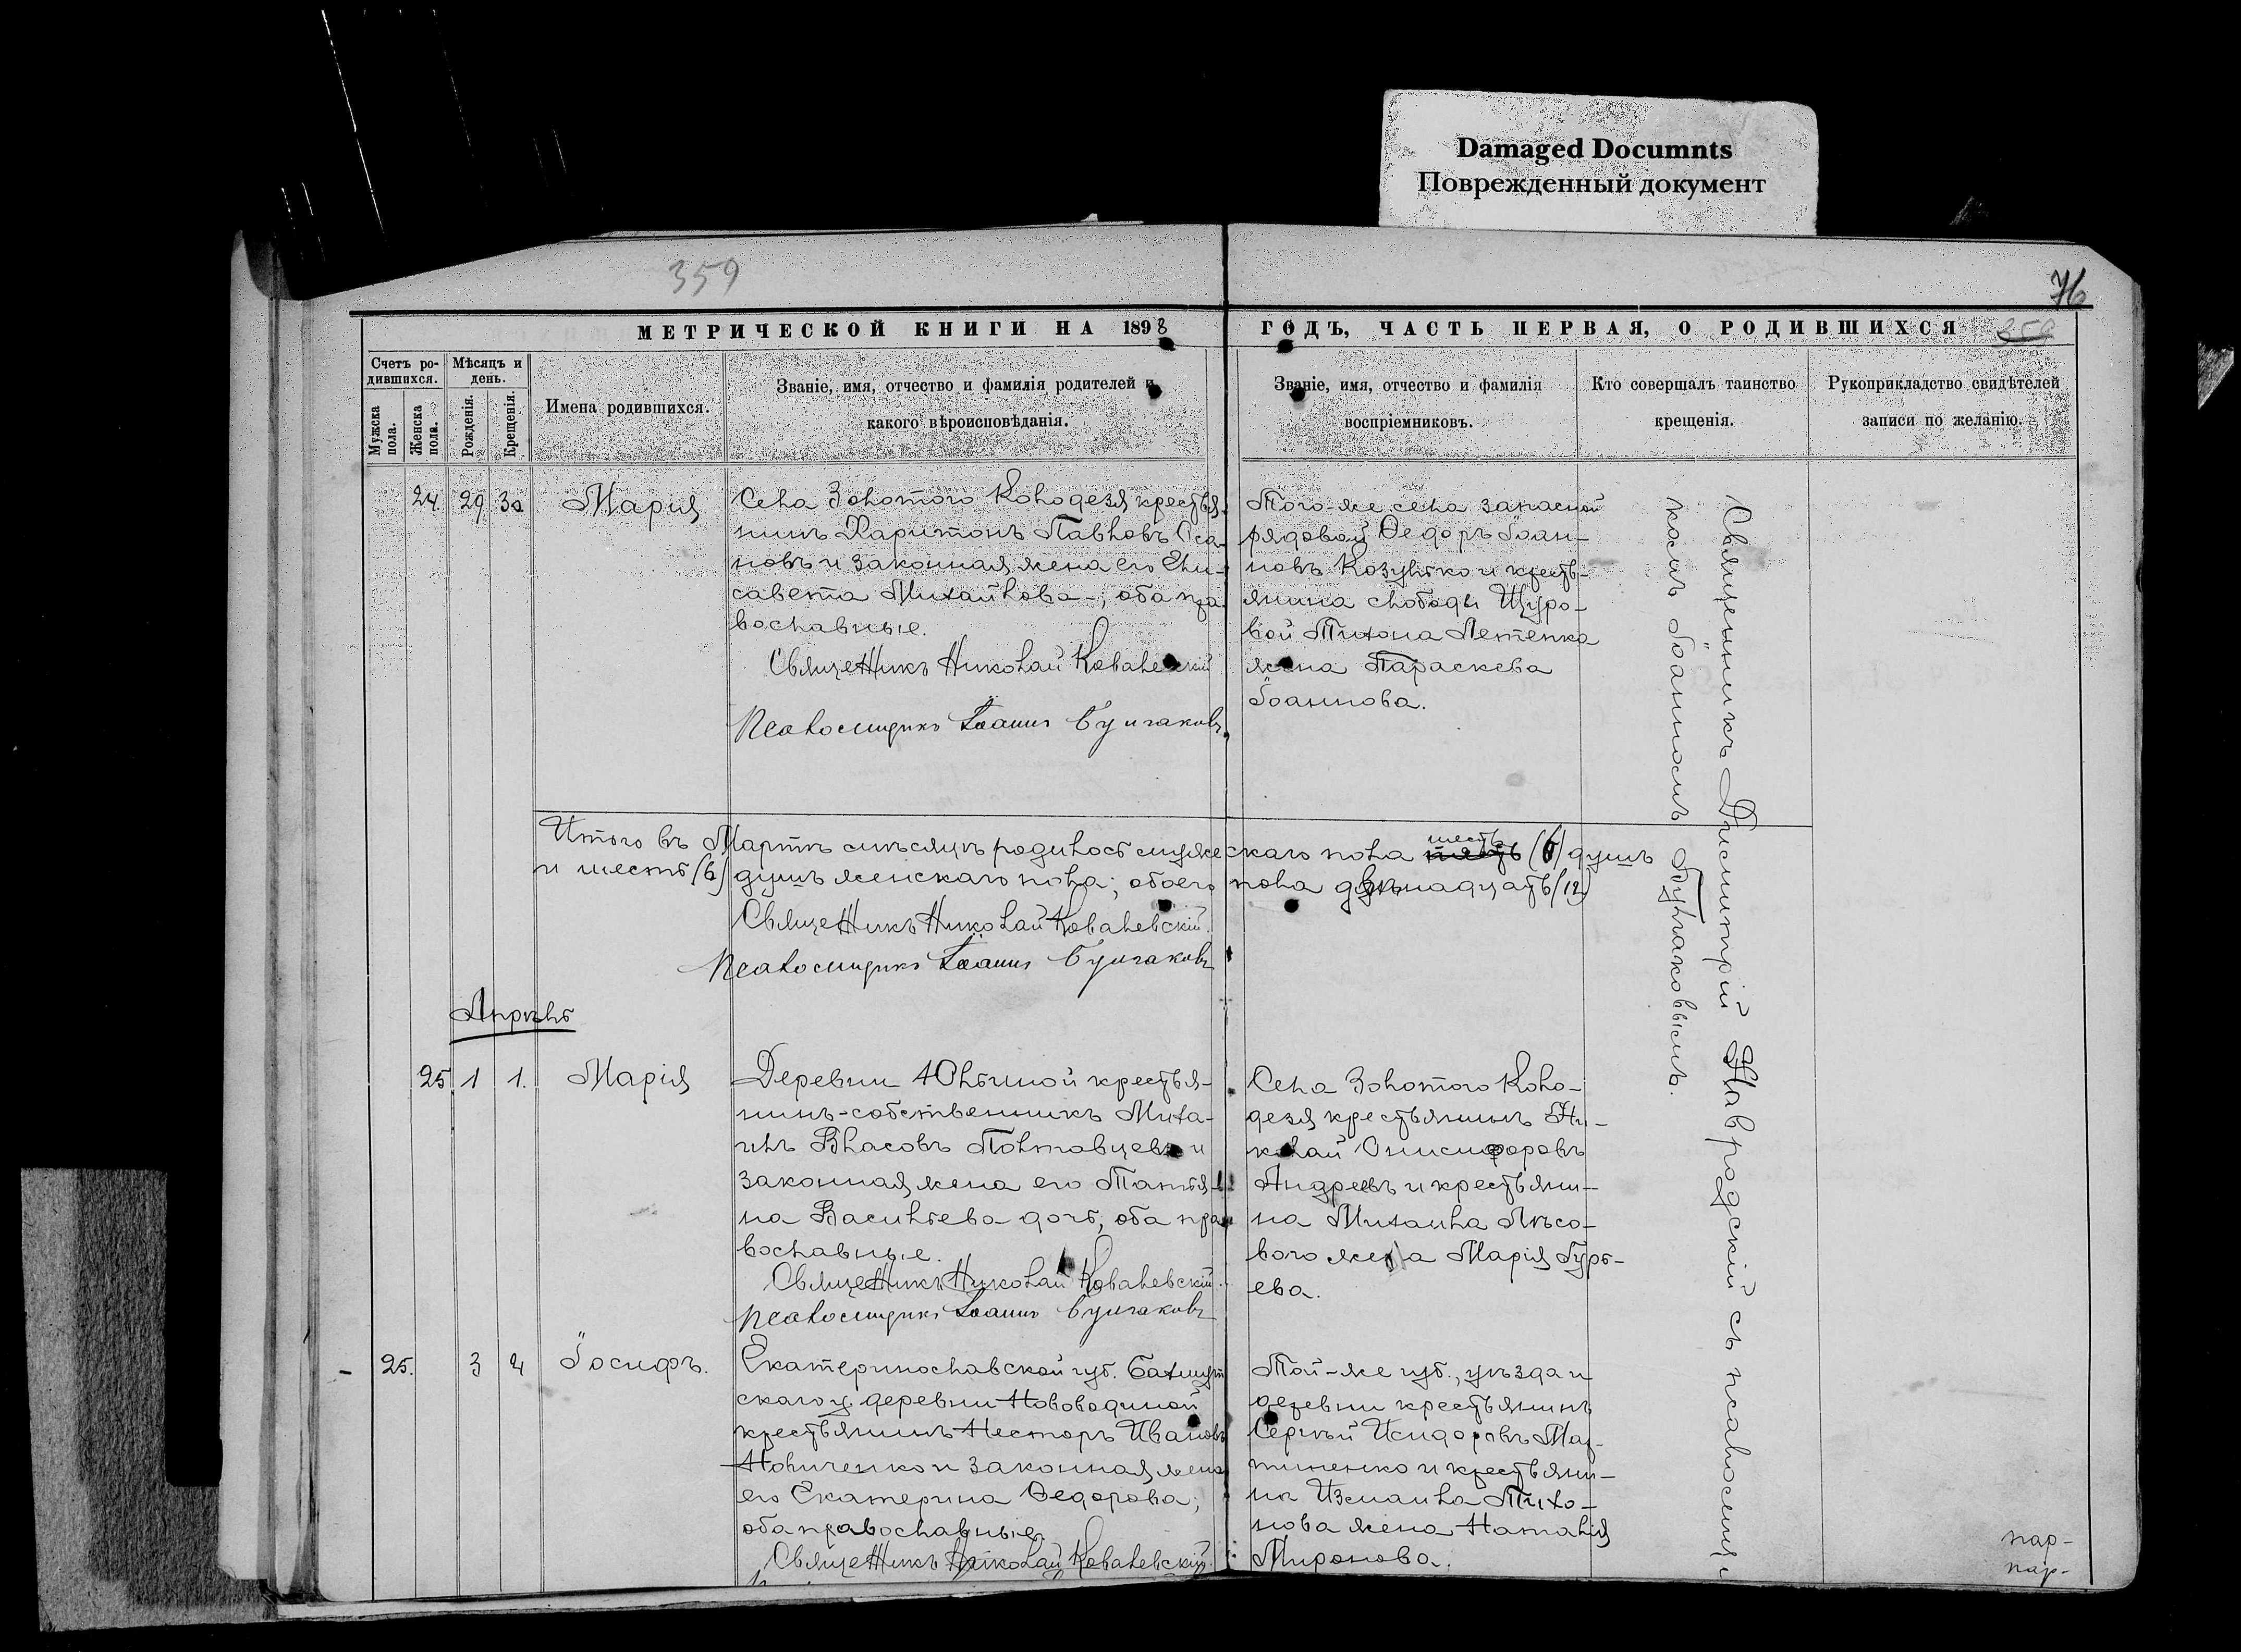 Damaged Documnts
Поврежденный документ
359
76
МЕТРИЧЕСКОЙ КНИГИ НА 1898
ГОДЪ, ЧАСТЬ ПЕРВАЯ, О РОДИВШИХСЯ
Счетъ ро-
дившихся.
Мужска
пола.
Женска
пола.
Мѣсяцъ и
день.
Рожденія.
Крещенія.
Имена родившихся.
Званіе, имя, отчество и фамилія родителей и
какого вѣроисповѣданія.
Званіе, имя, отчество и фамилія
воспріемниковъ.
Кто совершалъ таинство
крещенія.
Рукоприкладство свидѣтелей
записи по желанію.
24. 29 30 Марія
Села Золотого Колодезя крестья-
нинъ Харитонъ Павловъ
новъ и законная жена его Ели-
савета Михайлова-, оба пра-
вославные.
Священникъ Николай Ковалевскій
Псаломщикъ Іоаннъ Булгаковъ
Того-же села запасной
рядовой Ѳедоръ Іоан-
новъ Козулько и кресть-
янина слободы Щуро-
вой Тихона Летенка
жена Параскева
Іоаннова.
Священникъ Димитрій Навродскій съ псаломщи-
комъ Іоанномъ Булгаковымъ.
Итого въ Мартѣ мѣсяцѣ родилось мужескаго пола пять шесть (6) душъ
и шесть (6) душъ женскаго пола; обоего пола двѣнадцать (12)
Священникъ Николай Ковалевскій.
Псаломщикъ Іоаннъ Булгаковъ
Апрѣль
25 1 1. Марія
Деревни Юльиной крестья-
нинъ-собственникъ Миха-
илъ Власовъ Полтавцевъ и
законная жена его Татья-
на Васильева дочь, оба пра-
вославные.
Священникъ Николай Ковалевскій.
Псаломщикъ Іоаннъ Булгаковъ
Села Золотого Коло-
дезя крестьянинъ Ни-
колай Онисифоровъ
Андреевъ и крестьяни-
на Михаила Лѣсо-
вого жена Марія Гурь-
ева.
25. 3 4 Іосифъ.
Екатеринославской губ. Бахмут
скаго у. деревни Нововодиной
крестьянинъ Несторъ Ивановъ
Новиченко и законная жена
его Екатерина Ѳедорова;
оба православные
Священникъ Николай Ковалевскій.
Той-же губ., уѣзда и
деревни крестьянинъ
Сергѣй Исидоровъ Мар-
тиненко и крестьяни-
на Измаила Тихо-
нова жена Наталія
Миронова.
пар-
пар-